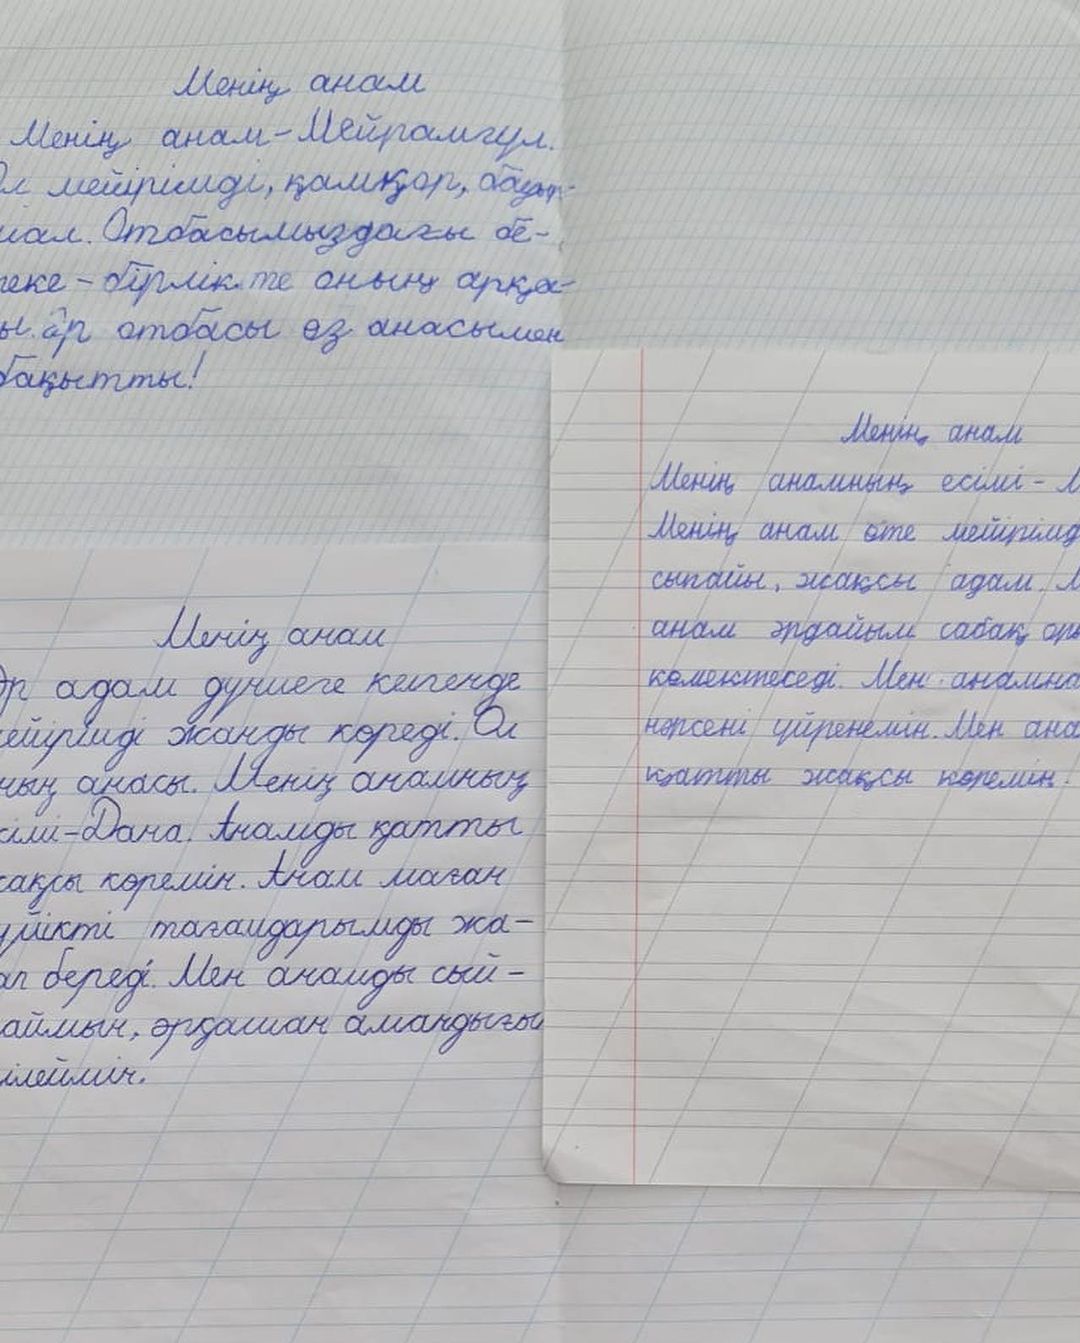 Менің анам
Менің анам-Мейрамгүл.
мейірімді, қамқор, бауыр-
мал. Отбасымыздағы бе-
реке-бірлік те оның арқа-
әр отбасы өз анасымен
бақытты!
Менің анам
Әр адам дүниеге келгенде
мейірімді жанды көреді. Ол
ның анасы. Менің анамның
есімі-Дана. Анамды қатты
жақсы көремін. Анам маған
сүйікті тағамдарымды жа-
береді. Мен анамды сый-
лаймын, әрқашан амандығы
тілеймін.
Менің анам
Менің анамның есімі-М
Менің анам өте мейірімд
сыпайы, жақсы адам. М
анам әрдайым сабақ оры
көмектеседі. Мен анамна
нәрсені үйренемін. Мен ана
қатты жақсы көремін.